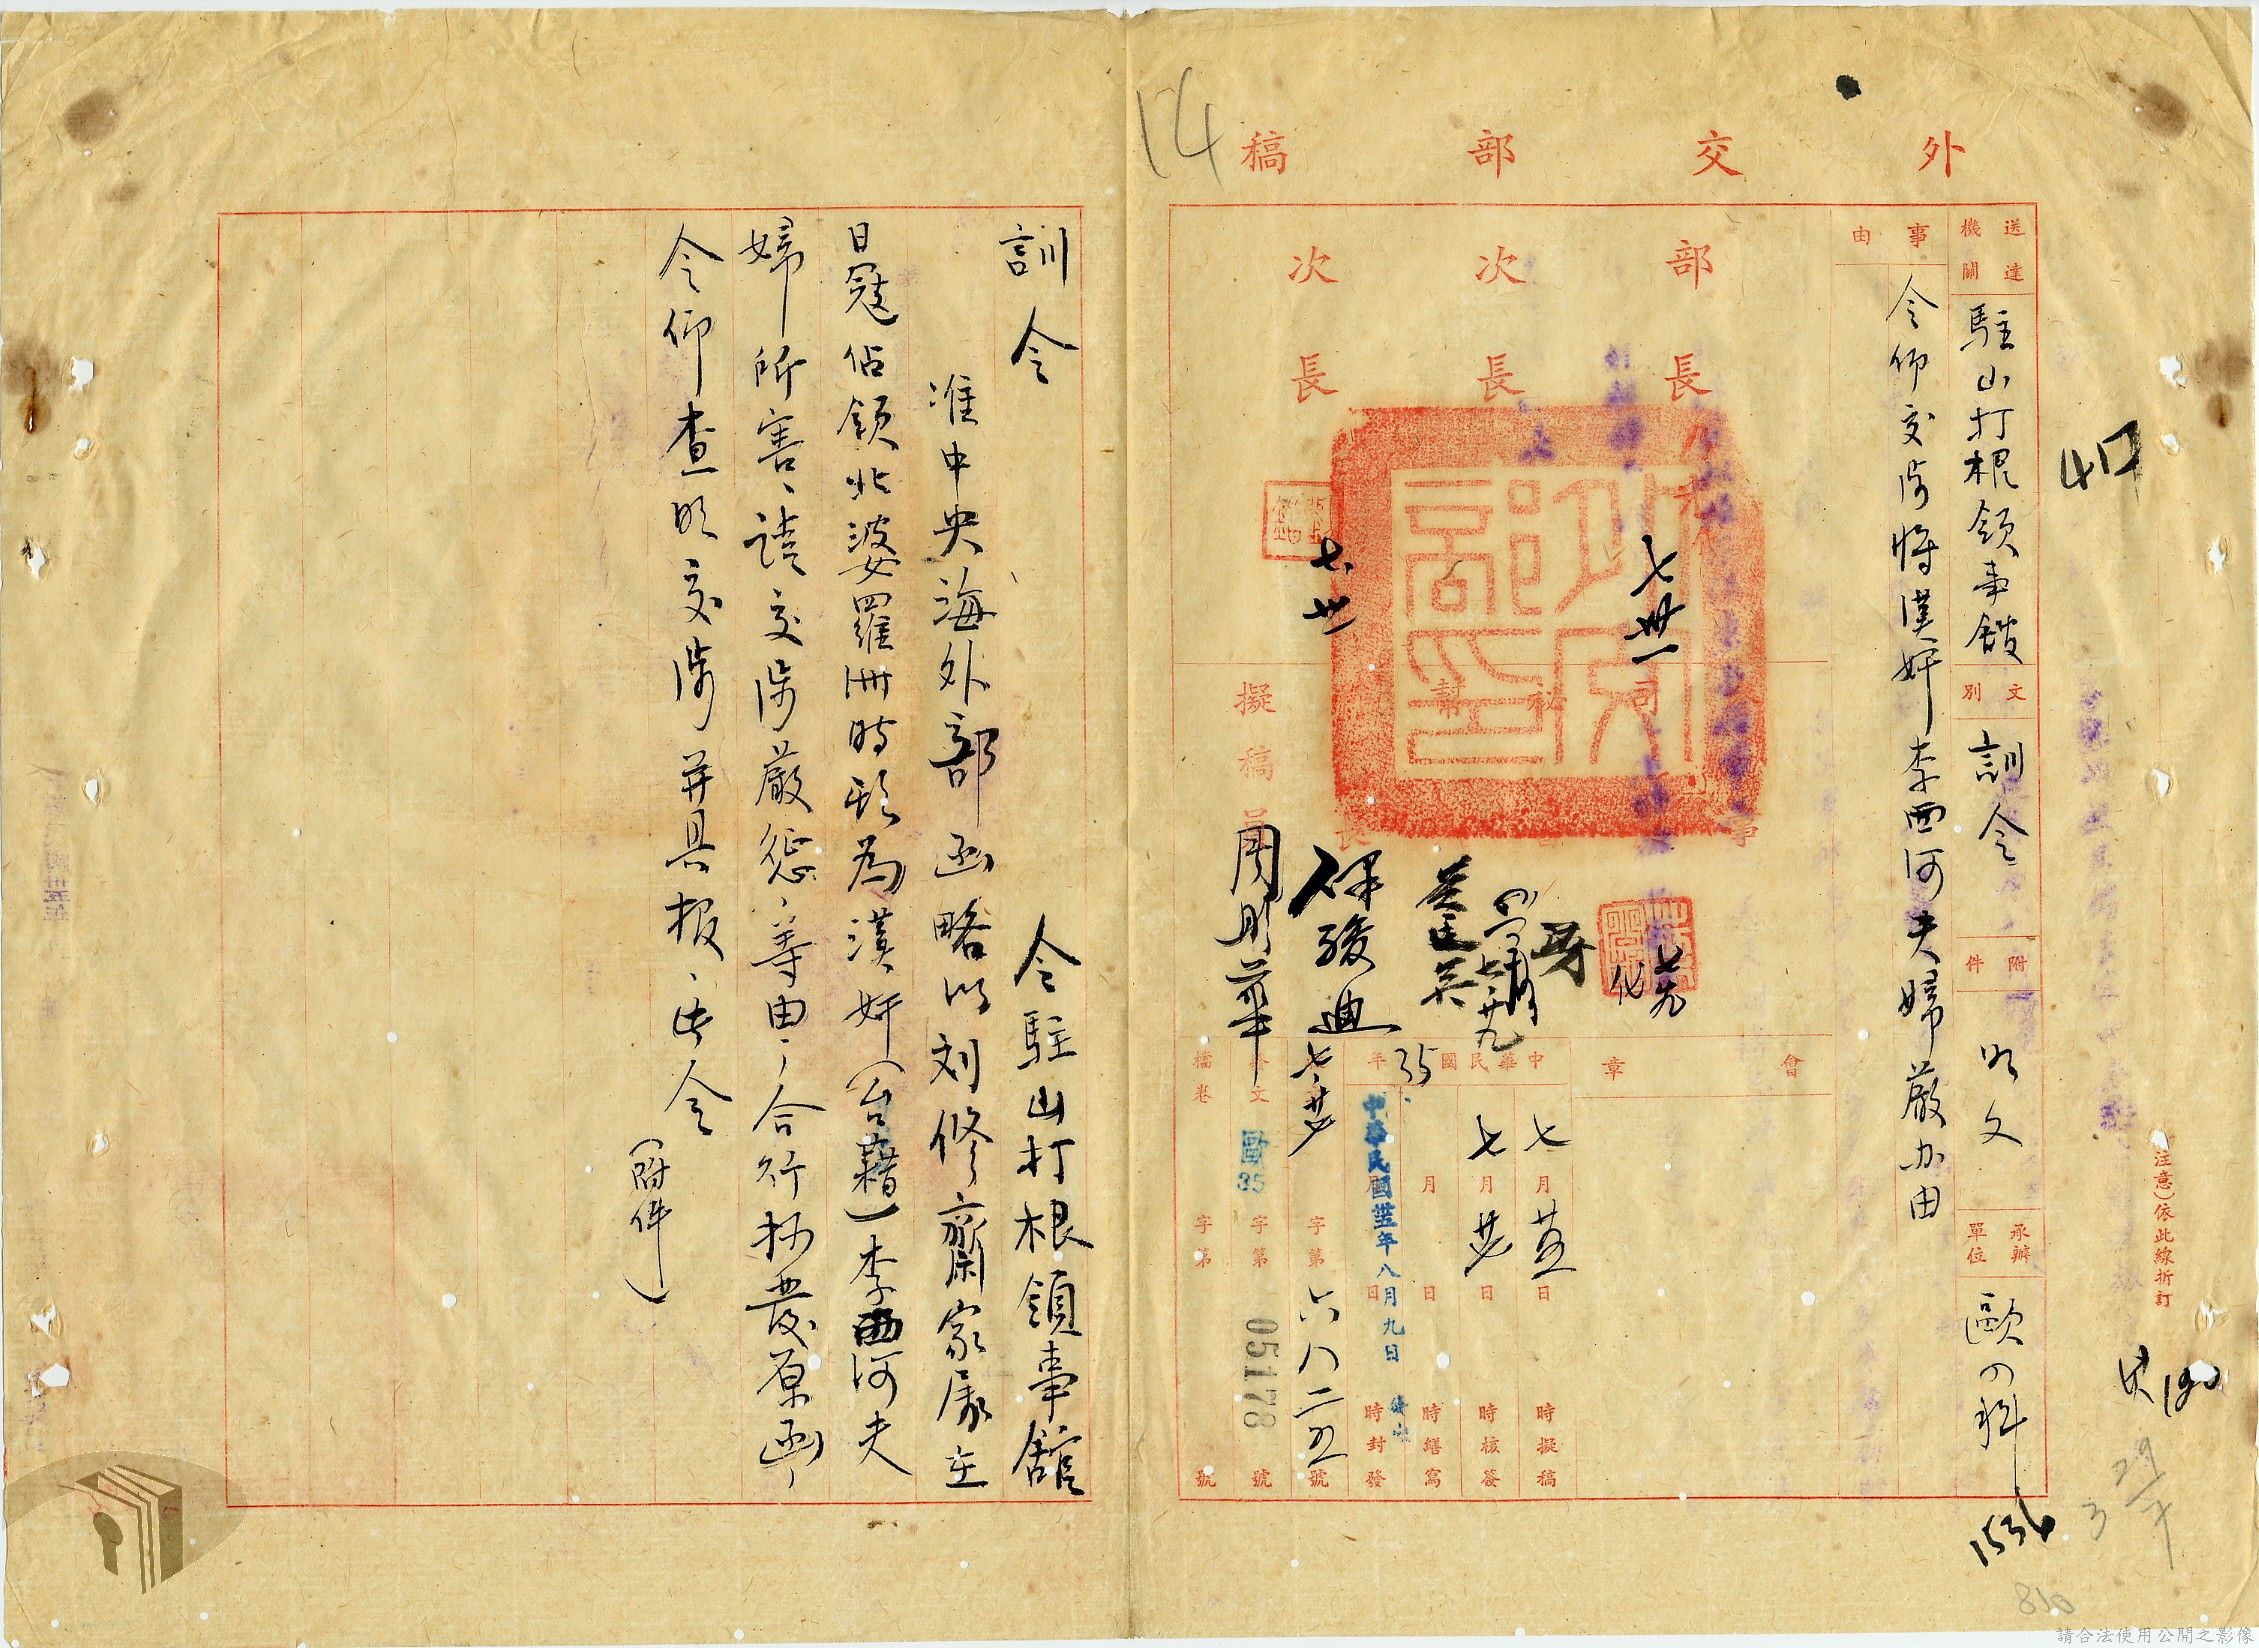 外交部稿
送達機關
駐山打根領事館
文別
訓令
附件
如文
承辦單位
歐四科
事由
令仰交涉將漢奸李西河夫婦嚴办由
部長
次長
次長
七卅一
七卅
擬稿員
周明華
保駿迪
會章
中華民國35年
七月
日
時擬稿
七月
日
時核簽
月
日
時繕寫
中華民國卅五年八月九日
時封發
字第六八二五號
發文歐35字第05178號
檔卷
字第
號
注意)依此線折訂
14
1536
810
訓令
令駐山打根領事館
准中央海外部函略以刘修齋家屬在
日寇佔領北婆羅洲時期為漢奸(台藉)李西河夫
婦所害、請交涉嚴惩、等由;合行抄發原函,
令仰查明交涉并具报、此令
(附件)
請合法使用公開之影像